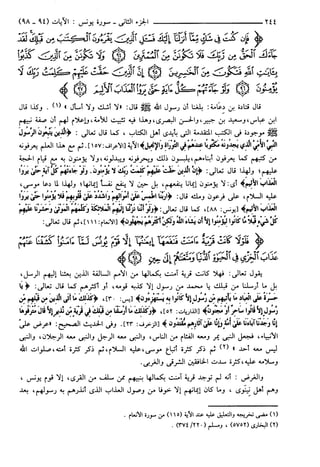 ٢٤٤ الجزء الثانى ـ سورة يونس : الآيات (٩٤ ـ ٩٨)
﴿ فَإِن كُنتَ فِي شَكٍّ مِّمَّا أَنزَلْنَا إِلَيْكَ فَسْـَٔلِ الَّذِينَ يَقْرَءُونَ الْكِتَٰبَ مِن قَبْلِكَ لَقَدْ
جَآءَكَ الْحَقُّ مِن رَّبِّكَ فَلَا تَكُونَنَّ مِنَ الْمُمْتَرِينَ وَلَا تَكُونَنَّ مِنَ الَّذِينَ كَذَّبُوا
بِـَٔايَٰتِ اللَّهِ فَتَكُونَ مِنَ الْخَٰسِرِينَ إِنَّ الَّذِينَ حَقَّتْ عَلَيْهِمْ كَلِمَتُ رَبِّكَ لَا
يُؤْمِنُونَ وَلَوْ جَآءَتْهُمْ كُلُّ ءَايَةٍ حَتَّىٰ يَرَوُا الْعَذَابَ الْأَلِيمَ ﴾
قال قتادة بن دعامة: بلغنا أن رسول الله ﷺ قال: «لا أشك ولا أسأل» (١) . وكذا قال
ابن عباس، وسعيد بن جبير، والحسن البصرى، وهذا فيه تثبيت للأمة، وإعلام لهم أن صفة نبيهم
موجودة فى الكتب المتقدمة التى بأيدى أهل الكتاب ، كما قال تعالى : ﴿الَّذِينَ يَتَّبِعُونَ الرَّسُولَ
النَّبِيَّ الْأُمِّيَّ الَّذِي يَجِدُونَهُ مَكْتُوبًا عِندَهُمْ فِي التَّوْرَاةِ وَالْإِنجِيلِ﴾ الآية [الأعراف: ١٥٧]. ثم مع هذا العلم يعرفونه
من كتبهم كما يعرفون أبناءهم، يلبسون ذلك ويحرفونه ويبدلونه، ولا يؤمنون به مع قيام الحجة
عليهم؛ ولهذا قال تعالى: ﴿إِنَّ الَّذِينَ حَقَّتْ عَلَيْهِمْ كَلِمَتُ رَبِّكَ لَا يُؤْمِنُونَ. وَلَوْ جَاءَتْهُمْ كُلُّ آيَةٍ حَتَّىٰ يَرَوُا
الْعَذَابَ الْأَلِيمَ﴾ أى: لا يؤمنون إيمانا ينفعهم، بل حين لا ينفع نفسًا إيمانها؛ ولهذا لما دعا موسى،
عليه السلام، على فرعون وملئه قال: ﴿رَبَّنَا اطْمِسْ عَلَىٰ أَمْوَالِهِمْ وَاشْدُدْ عَلَىٰ قُلُوبِهِمْ فَلَا يُؤْمِنُوا حَتَّىٰ يَرَوُا
الْعَذَابَ الْأَلِيمَ﴾ [يونس: ٨٨]، كما قال تعالى: ﴿وَلَوْ أَنَّنَا نَزَّلْنَا إِلَيْهِمُ الْمَلَائِكَةَ وَكَلَّمَهُمُ الْمَوْتَىٰ وَحَشَرْنَا عَلَيْهِمْ
كُلَّ شَيْءٍ قُبُلًا مَّا كَانُوا لِيُؤْمِنُوا إِلَّا أَن يَشَاءَ اللَّهُ وَلَٰكِنَّ أَكْثَرَهُمْ يَجْهَلُونَ﴾ [الأنعام: ١١١]، ثم قال تعالى:
﴿ فَلَوْلَا كَانَتْ قَرْيَةٌ ءَامَنَتْ فَنَفَعَهَآ إِيمَٰنُهَآ إِلَّا قَوْمَ يُونُسَ لَمَّآ ءَامَنُوا كَشَفْنَا عَنْهُمْ
عَذَابَ الْخِزْيِ فِي الْحَيَوٰةِ الدُّنْيَا وَمَتَّعْنَٰهُمْ إِلَىٰ حِينٍ ﴾
يقول تعالى: فهلا كانت قرية آمنت بكمالها من الأمم السالفة الذين بعثنا إليهم الرسل،
بل ما أرسلنا من قبلك يا محمد من رسول إلا كذبه قومه، أو أكثرهم كما قال تعالى: ﴿يَا
حَسْرَةً عَلَى الْعِبَادِ مَا يَأْتِيهِم مِّن رَّسُولٍ إِلَّا كَانُوا بِهِ يَسْتَهْزِءُونَ﴾ [يس: ٣٠]، ﴿كَذَٰلِكَ مَا أَتَى الَّذِينَ مِن قَبْلِهِم مِّن
رَّسُولٍ إِلَّا قَالُوا سَاحِرٌ أَوْ مَجْنُونٌ﴾ [الذاريات: ٥٢]، ﴿وَكَذَٰلِكَ مَا أَرْسَلْنَا مِن قَبْلِكَ فِي قَرْيَةٍ مِّن نَّذِيرٍ إِلَّا قَالَ مُتْرَفُوهَا
إِنَّا وَجَدْنَا آبَاءَنَا عَلَىٰ أُمَّةٍ وَإِنَّا عَلَىٰ آثَارِهِم مُّقْتَدُونَ﴾ [الزخرف: ٢٣]. وفى الحديث الصحيح: «عرض علىّ
الأنبياء، فجعل النبى يمر ومعه الفئام من الناس، والنبى معه الرجل والنبى معه الرجلان، والنبى
ليس معه أحد » (٢) ثم ذكر كثرة أتباع موسى، عليه السلام، ثم ذكر كثرة أمته، صلوات الله
وسلامه عليه، كثرة سدت الخافقين الشرقى والغربى.
والغرض : أنه لم توجد قرية آمنت بكمالها بنبيهم ممن سلف من القرى، إلا قوم يونس ،
وهم أهل نِينَوى ، وما كان إيمانهم إلا خوفا من وصول العذاب الذى أنذرهم به رسولهم، بعد
(١) مضى تخريجه والتعليق عليه عند الآية (١١٥) من سورة الأنعام .
(٢) البخارى (٥٧٥٢) ، ومسلم (٢٢٠/ ٣٧٤) .